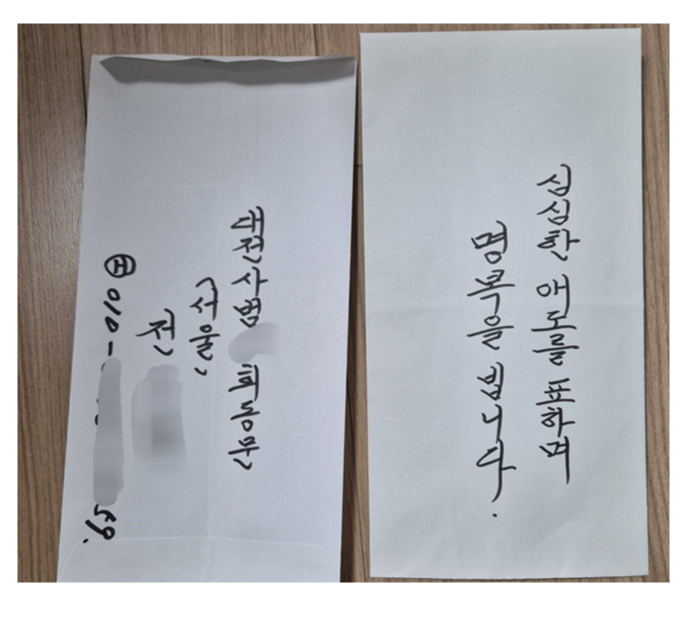 심심한 애도를 표하며
명복을 빕니다.
대전사범 회동문
(서울)
전
Ⓗ 010- 59.